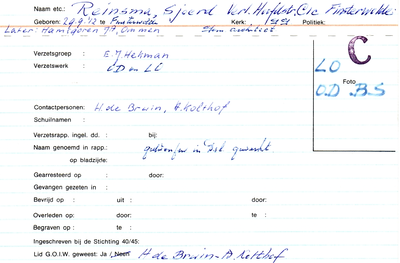 Naam etc.: Reinsma, Sjoerd Verl. Hoofdstr. C1c Finsterwolde
Geboren: 29.9.'12 te Finsterwolde Kerk: Politiek:
Later: Hamsgoren 77, Ommen
C
Verzetsgroep : E.J. Hekman
Verzetswerk : OD en LO
LO
Foto
O.D. B.S
Contactpersonen: H de Bruin, Kolthof
Schuilnaam :
Verzetsrapp. ingel. dd. : bij:
Naam genoemd in rapp.: in
op bladzijde:
Gearresteerd op : door:
Gevangen gezeten in :
Bevrijd op : uit : door:
Overleden op: door: te :
Begraven op : te :
Ingeschreven bij de Stichting 40/45:
Lid G.O.I.W. geweest: Ja / Neen H de Bruin - Kolthof